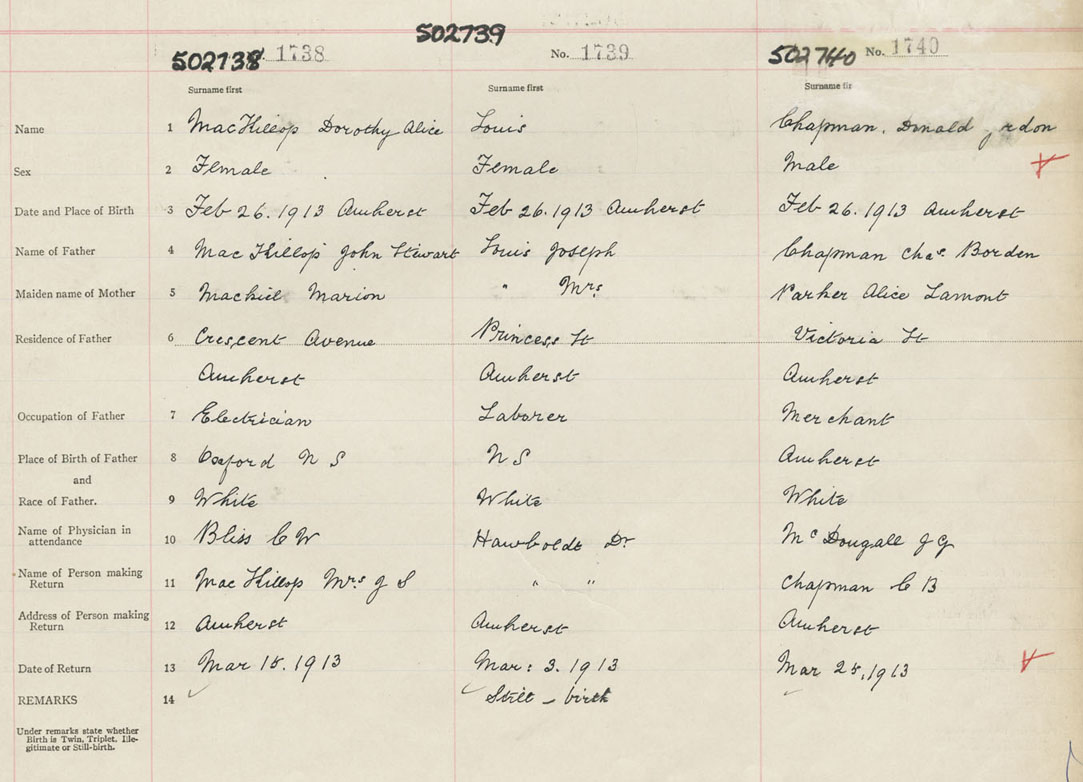 502739
502738 1738 No. 1739 502740 No. 1740
Surname first Surname first Surname fir
Name 1 MacKillop Dorothy Alice Louis Chapman, Donald
Sex 2 Female Female Male
Date and Place of Birth 3 Feb 26. 1913 Amherst Feb 26. 1913 Amherst Feb 26. 1913 Amherst
Name of Father 4 MacKillop John Stewart Louis Joseph Chapman Chas Borden
Maiden name of Mother 5 Marion " Mrs Parker Alice Lamont
Residence of Father 6 Crescent Avenue Princess St Victoria St
Amherst Amherst Amherst
Occupation of Father 7 Electrician Laborer Merchant
Place of Birth of Father 8 Oxford N S N S Amherst
and
Race of Father. 9 White White White
Name of Physician in
attendance 10 Bliss C W Hawboldt Dr McDougall J G
Name of Person making
Return 11 MacKillop Mrs J S " " Chapman C B
Address of Person making
Return 12 Amherst Amherst Amherst
Date of Return 13 Mar 1913 Mar: 3. 1913 Mar 1913
REMARKS 14 Still - birth
Under remarks state whether
Birth is Twin, Triplet, Ille-
gitimate or Still-birth.